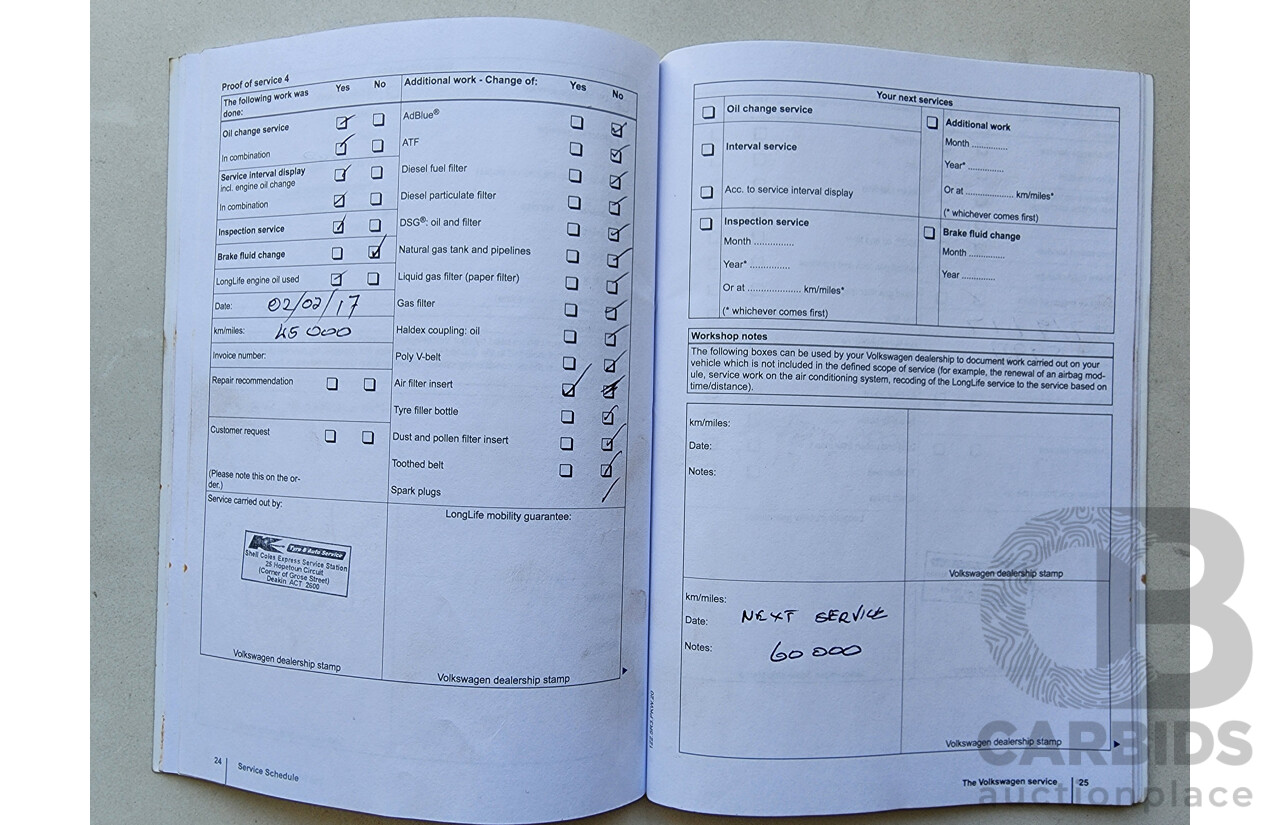 Proof of service 4
The following work was done: Yes No
Oil change service
In combination
Service interval display
incl. engine oil change
In combination
Inspection service
Brake fluid change
LongLife engine oil used
Date: 02/02/17
km/miles: 45 000
Invoice number:
Repair recommendation
Customer request
(Please note this on the or-
der.)
Service carried out by:
Tyre & Auto Service
Shell Coles Express Service Station
25 Hopetoun Circuit
(Corner of Grose Street)
Deakin ACT 2600
Volkswagen dealership stamp
Additional work - Change of: Yes No
AdBlue®
ATF
Diesel fuel filter
Diesel particulate filter
DSG®: oil and filter
Natural gas tank and pipelines
Liquid gas filter (paper filter)
Gas filter
Haldex coupling: oil
Poly V-belt
Air filter insert
Tyre filler bottle
Dust and pollen filter insert
Toothed belt
Spark plugs
LongLife mobility guarantee:
Volkswagen dealership stamp
24 Service Schedule
Your next services
Oil change service
Interval service
Acc. to service interval display
Inspection service
Month ..............
Year* ..............
Or at ................... km/miles*
(* whichever comes first)
Additional work
Month .............
Year* .............
Or at ................. km/miles*
(* whichever comes first)
Brake fluid change
Month .............
Year ............
Workshop notes
The following boxes can be used by your Volkswagen dealership to document work carried out on your
vehicle which is not included in the defined scope of service (for example, the renewal of an airbag mod-
ule, service work on the air conditioning system, recoding of the LongLife service to the service based on
time/distance).
km/miles:
Date:
Notes:
Volkswagen dealership stamp
km/miles:
Date: NEXT SERVICE
Notes: 60 000
Volkswagen dealership stamp
The Volkswagen service 25
CARBIDS
auctionplace